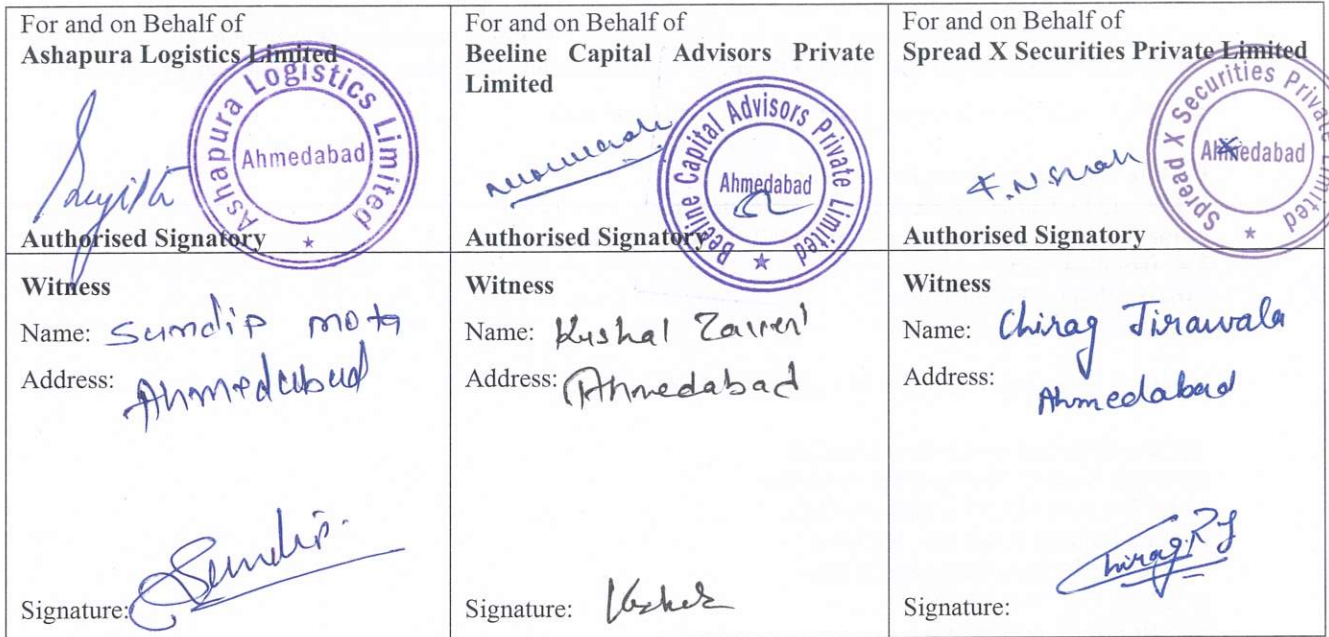 For and on Behalf of
Ashapura Logistics Limited
Ashapura Logistics Limited
Ahmedabad
Authorised Signatory
For and on Behalf of
Beeline Capital Advisors Private
Limited
Beeline Capital Advisors Private Limited
Ahmedabad
Authorised Signatory
For and on Behalf of
Spread X Securities Private Limited
Spread X Securities Private Limited
Ahmedabad
Authorised Signatory
Witness
Name: Sumdip mota
Address: Ahmedabad
Sumdip.
Signature:
Witness
Name: Kushal
Address: Ahmedabad
Signature:
Witness
Name: Chirag Jirawala
Address:
Ahmedabad
Chirag R J
Signature: